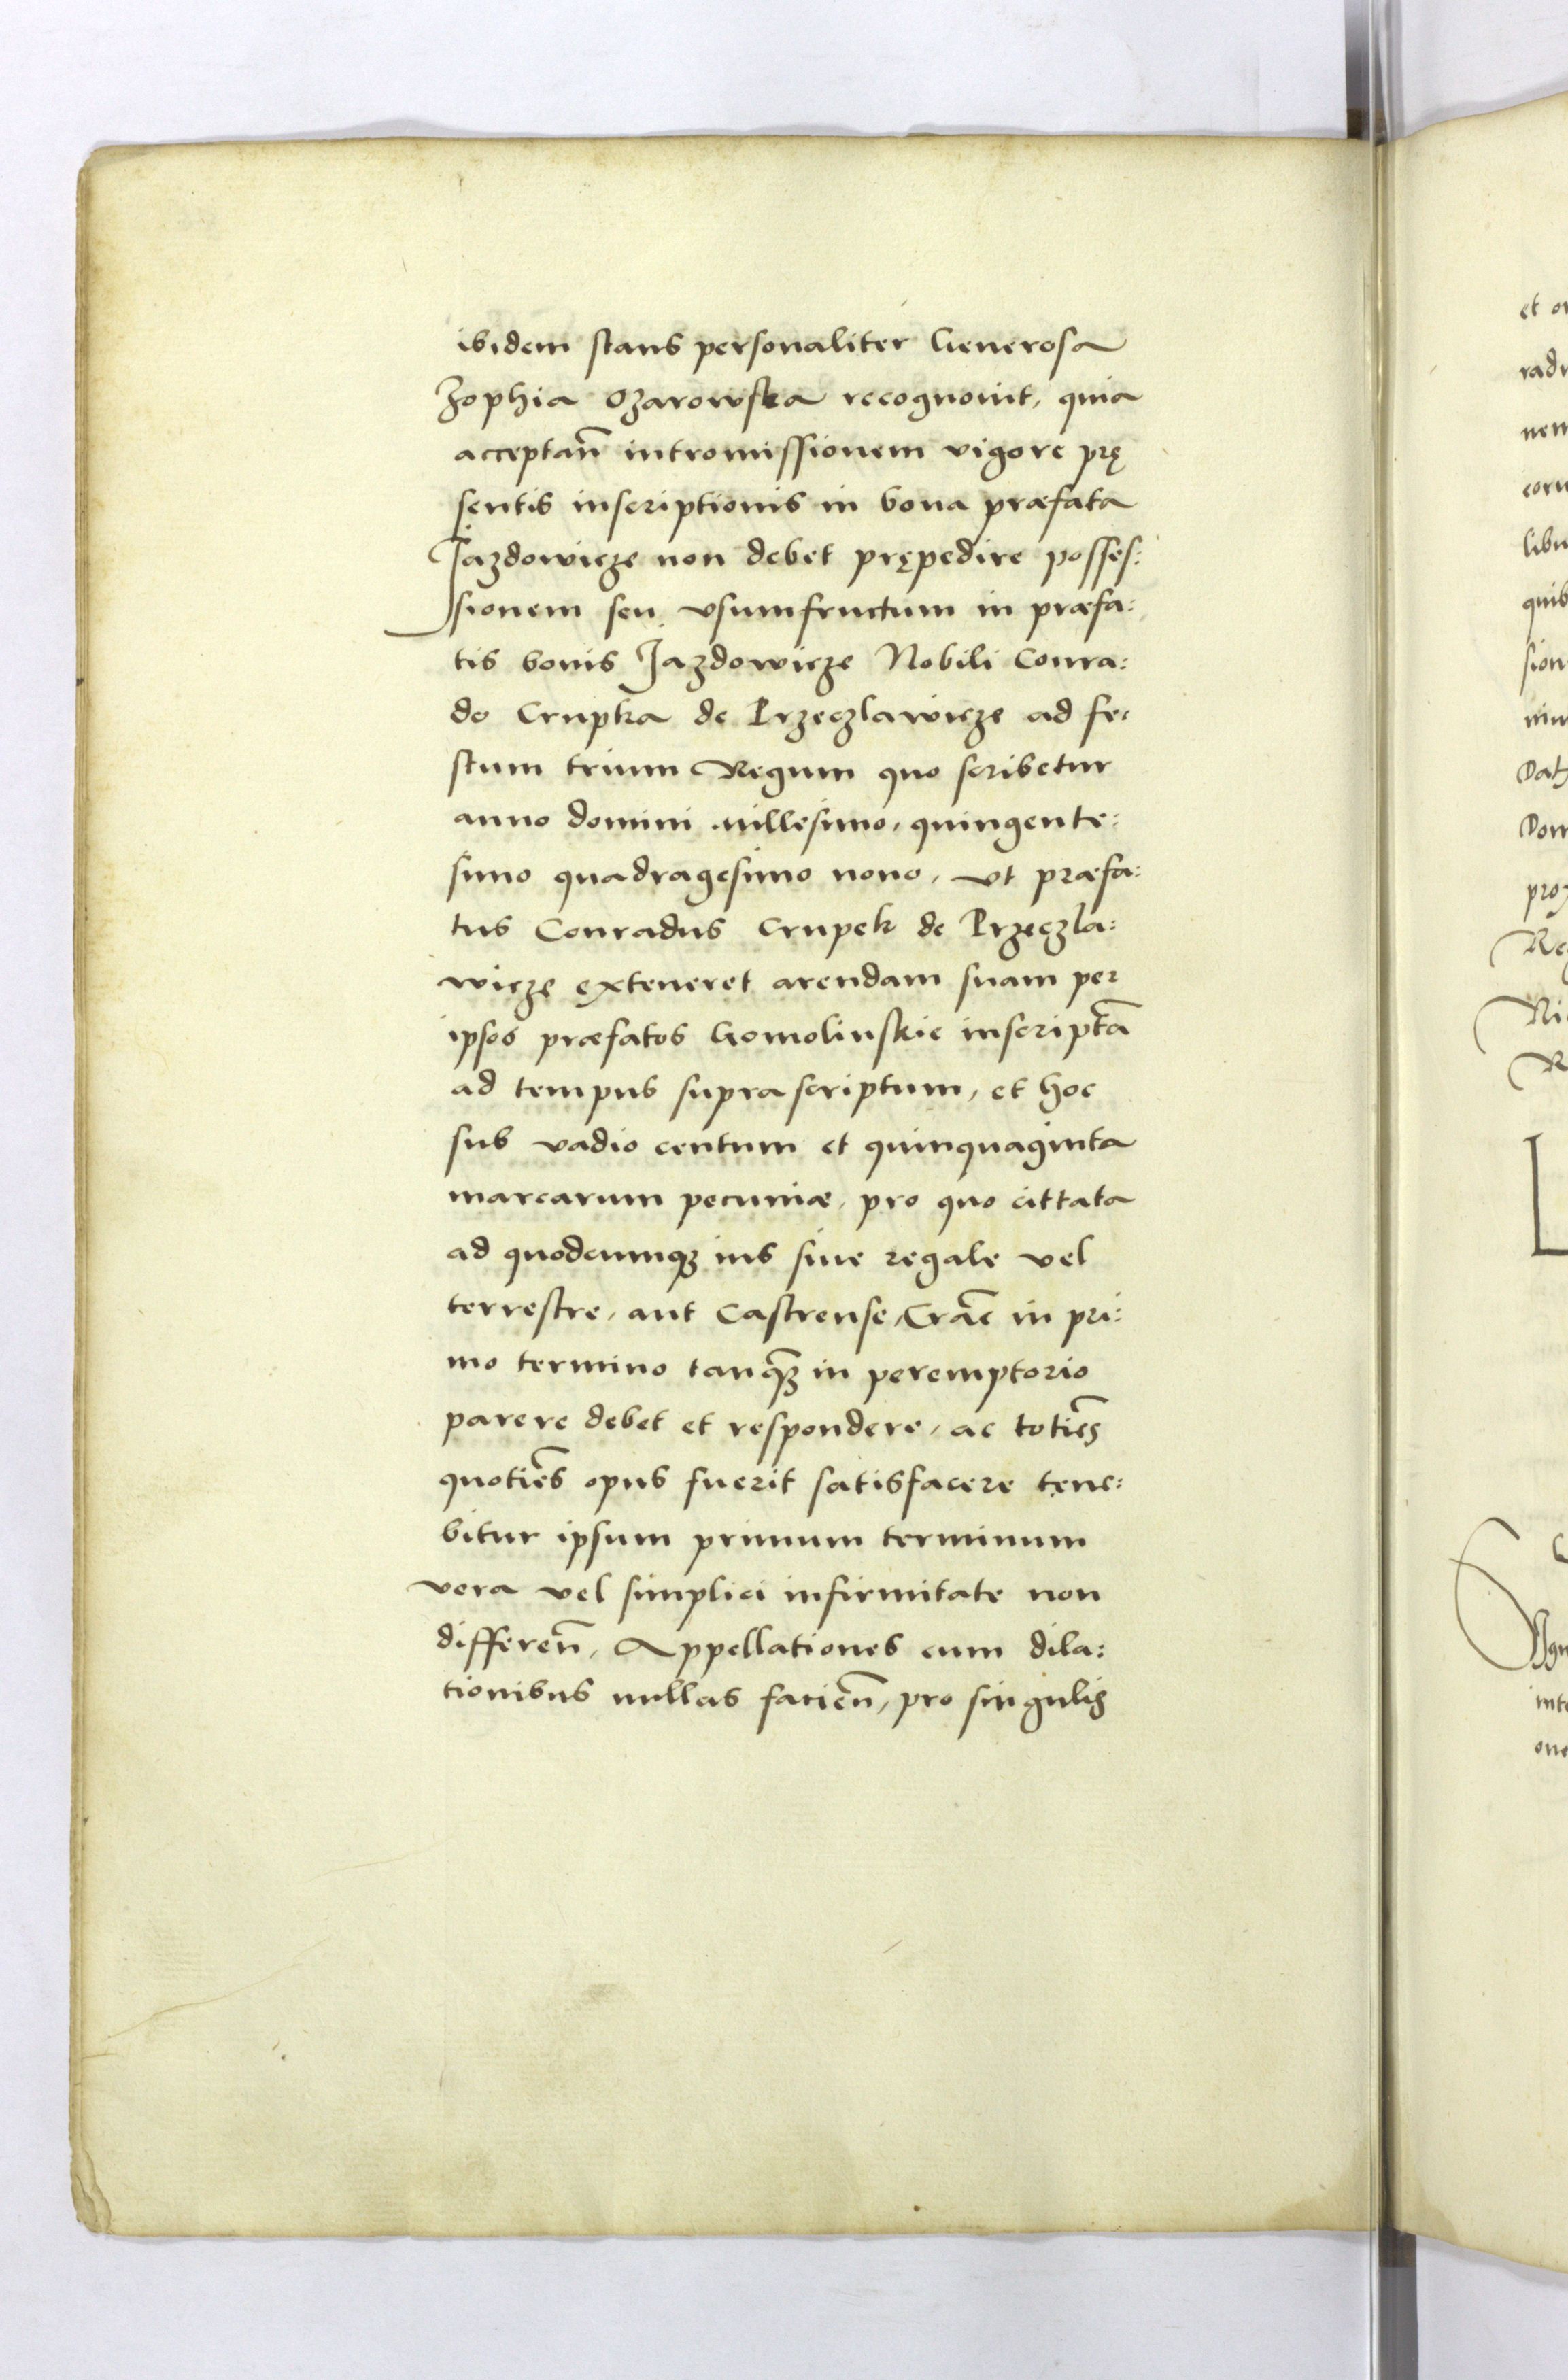 ibidem stans personaliter Generosa
Zophia Ozarowska recognouit, quia
acceptan̄ intromissionem vigore prę
sentis inscriptionis in bona præfata
Jazdowicze non debet prępedire posses:
sionem seu vsumfructum in præfa:
tis bonis Jazdowicze Nobili Conra:
do Crupka de Przeczlawicze ad fe:
stum trium Regum quo scribetur
anno domini millesimo, quingente:
simo quadragesimo nono, vt præfa:
tus Conradus Crupek de Przeczla:
wicze exteneret arendam suam per
ipsos præfatos Gomolinskie inscriptā
ad tempus supra scriptum, et hoc
sub vadio centum et quinquaginta
marcarum pecuniæ, pro quo cittata
ad quodcumqꝫ ius siue regale vel
terrestre, aut Castrense, Crac̄ in pri:
mo termino tanq̄ꝫ in peremptorio
parere debet et respondere, ac totiēs
quotiēs opus fuerit satisfacere tene:
bitur ipsum primum terminum
vera vel simplici infirmitate non
differen̄, Appellationes cum dila:
tionibus nullas facien̄, pro singulis
et
libu
quib
sion
Dat
Dom
prox
Re
Ni
R
L